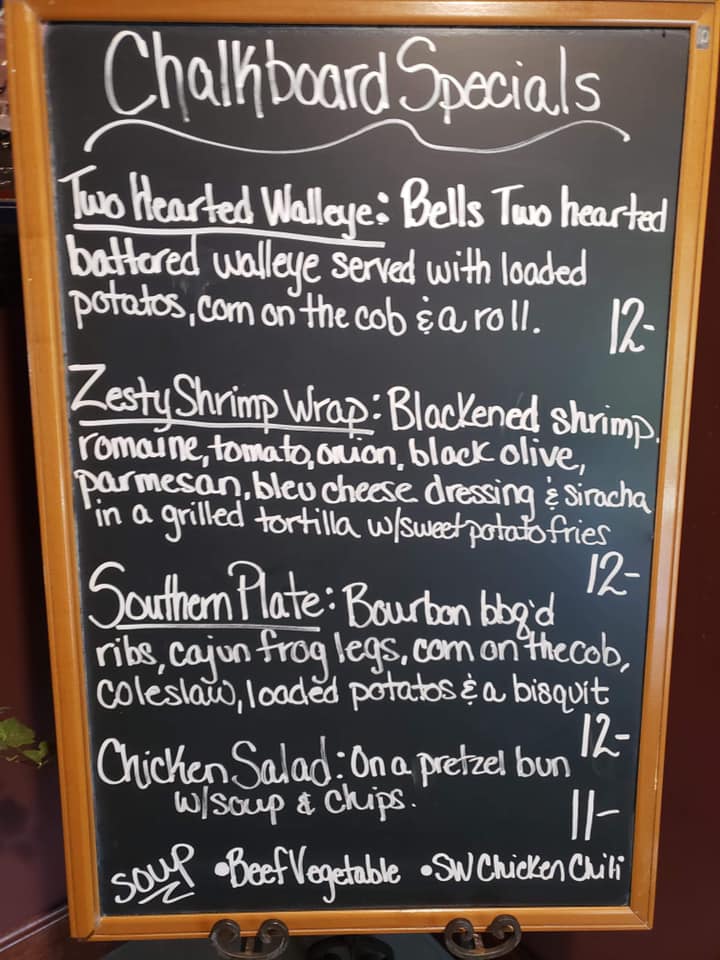 Chalkboard Specials
Two Hearted Walleye: Bells Two hearted
battered walleye served with loaded
potatos, corn on the cob & a roll.
12-
Zesty Shrimp Wrap: Blackened shrimp,
romaine, tomato, onion, black olive,
parmesan, bleu cheese dressing & siracha
in a grilled tortilla w/sweet potato fries
12-
Southern Plate: Bourbon bbq'd
ribs, cajun frog legs, corn on the cob,
coleslaw, loaded potatos & a bisquit
12-
Chicken Salad: On a pretzel bun
w/soup & chips.
11-
soup • Beef Vegetable • SW Chicken Chili